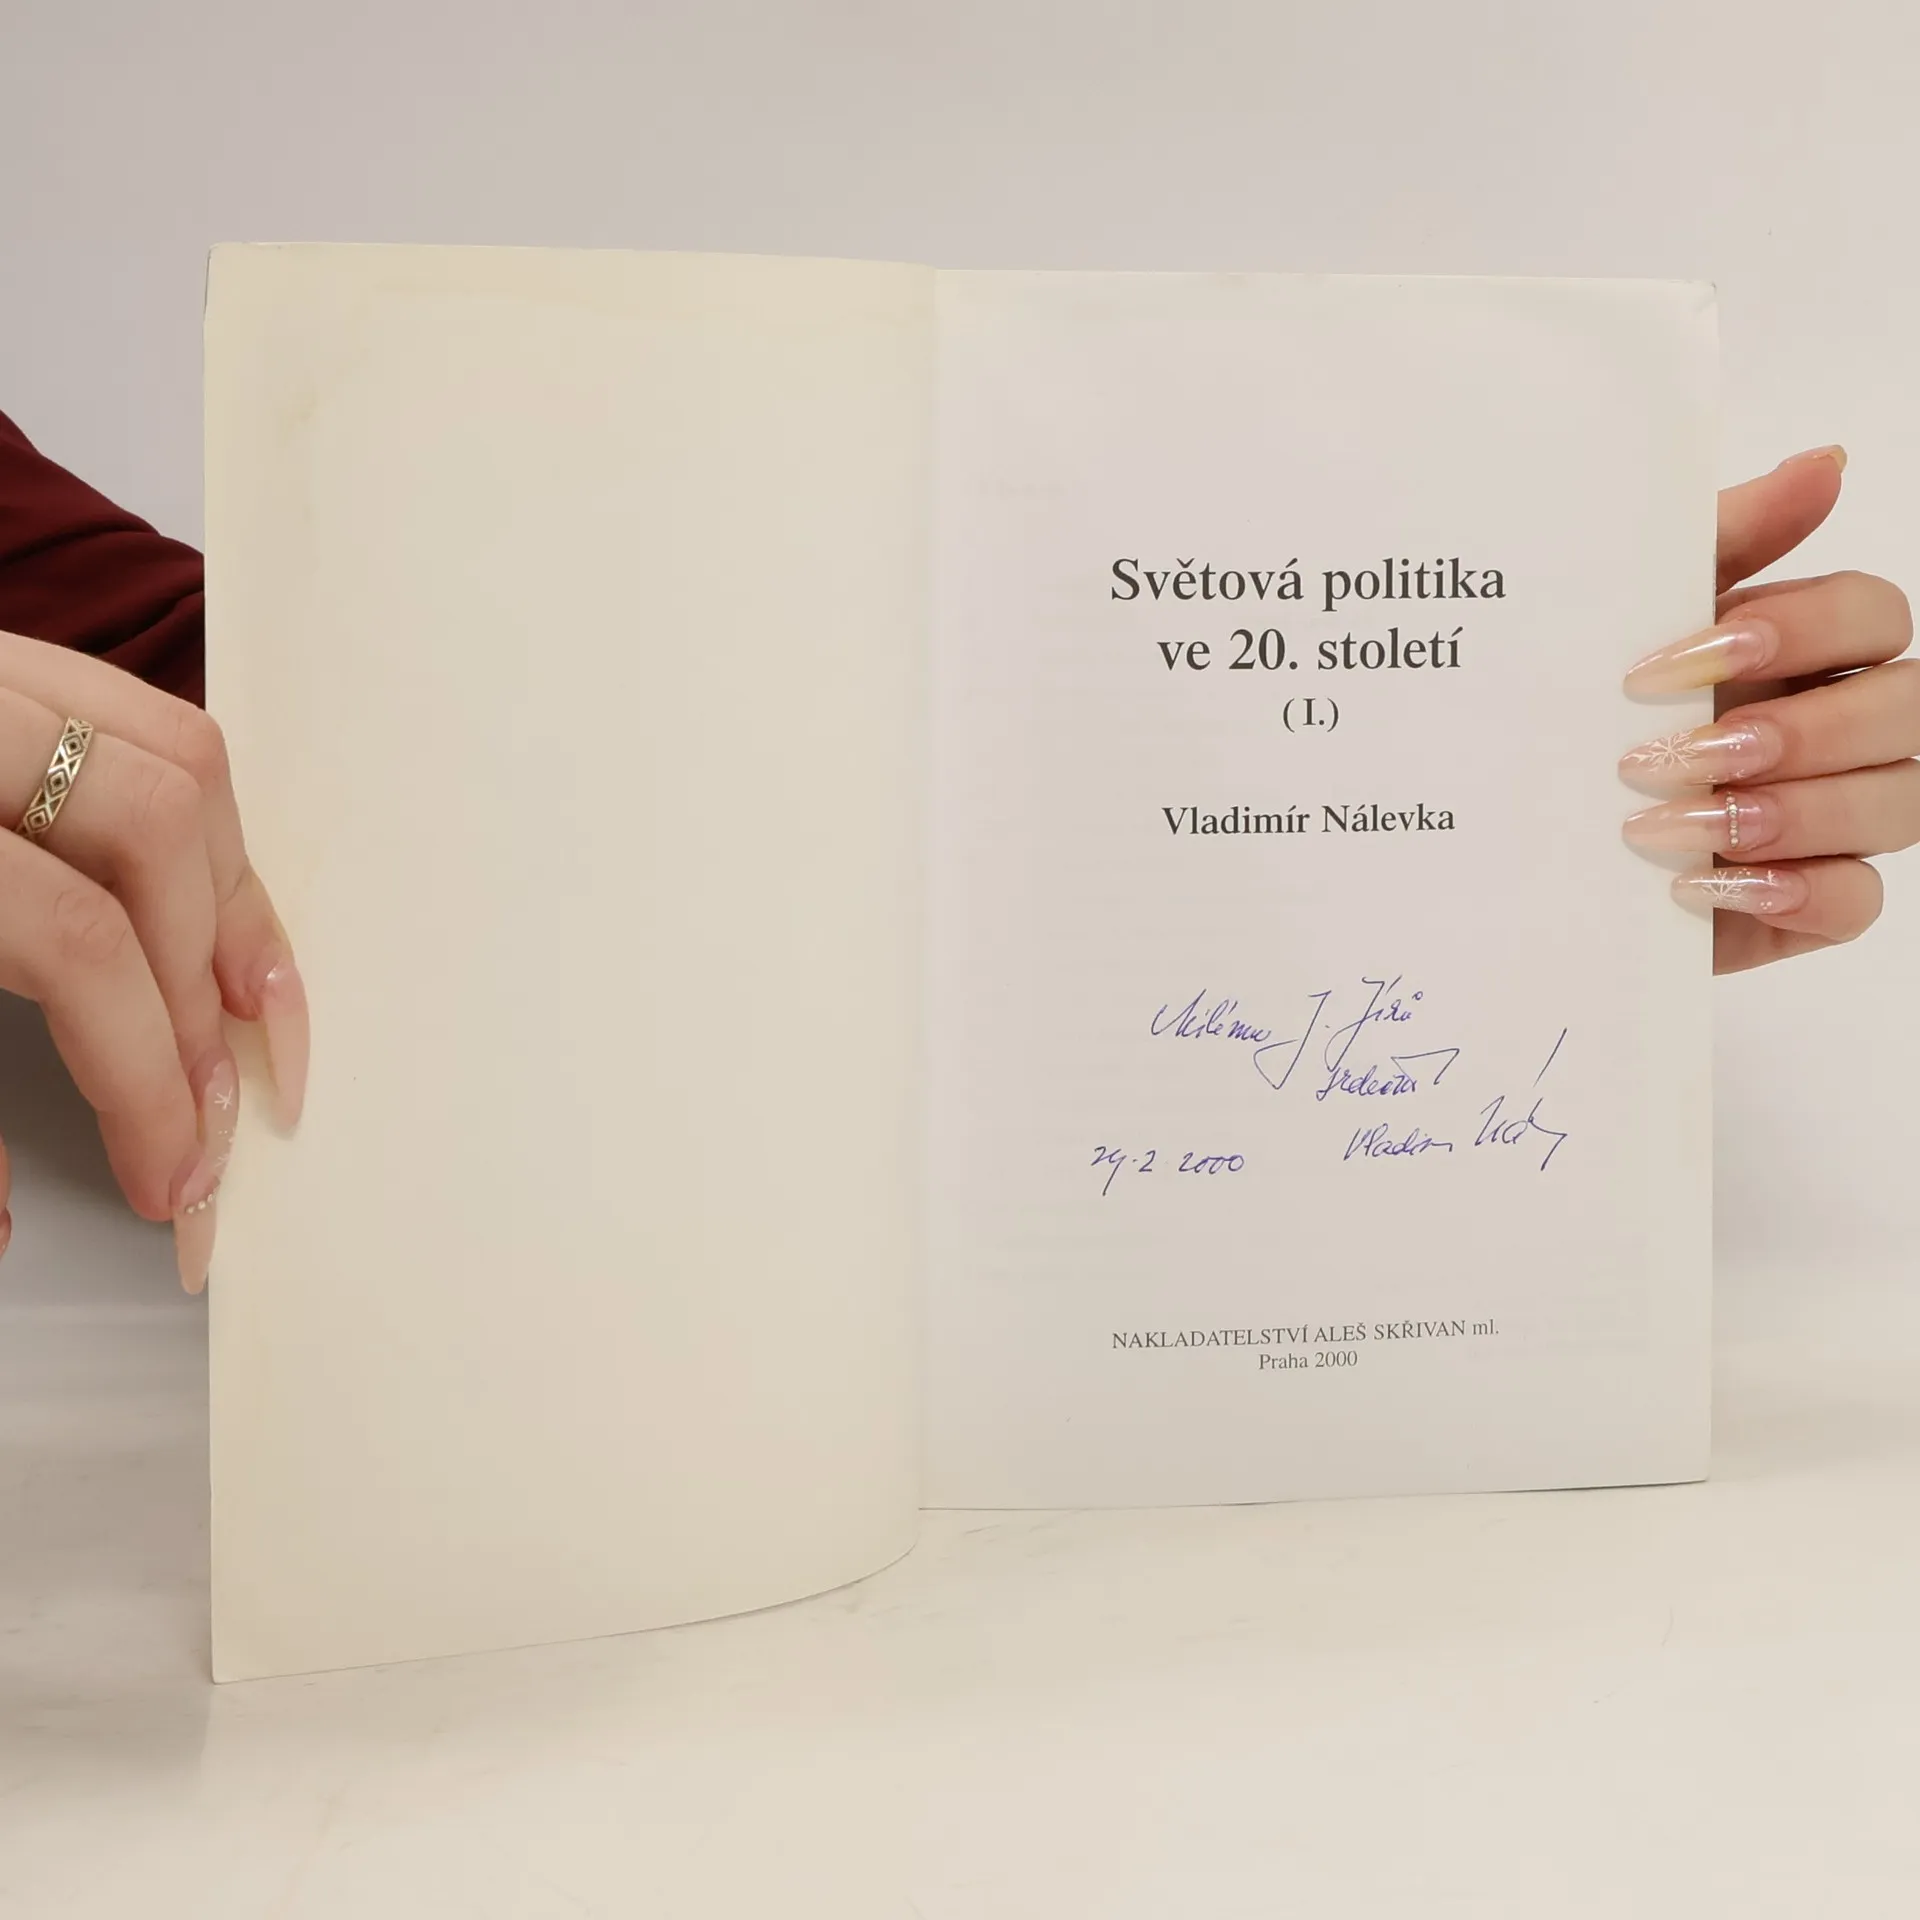 Světová politika
ve 20. století
(I.)
Vladimír Nálevka
Milému J. Jírů
srdečně
29.2 2000 Vladimír
NAKLADATELSTVÍ ALEŠ SKŘIVAN ml.
Praha 2000